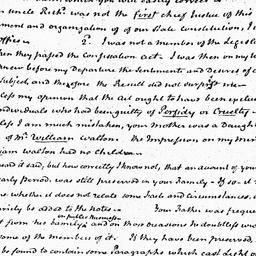 uncle Rich.d was not the first Chief Justice of this
ment and organization of our State Constitution, I
office – 2.d I was not a member of the legisla
hen they passed the Confiscation Act – I was then on my
knew before my Departure the Sentiments and Desires of
subject, and therefore the Result did not surprise me –
less my opinion that the Act ought to have been exclus
ndividuals who had been guilty of Perfidy or Cruelty –
less I am much mistaken, your Mother was a Daugh
of Mr. William Walton. The Impression on my min
iam Walton had no Children –
said it said, but how correctly I know not, that an account of you
early period, was still preserved in your Family – If so – I
s, whether it does not relate some Facts and Circumstances,
mily be added to the Notes – Your Father was freque
on public Business
t from his family, and on those occasions he doubtless
some of the members of it. If they have been preserved,
be found to contain some Paragraphs which cast light